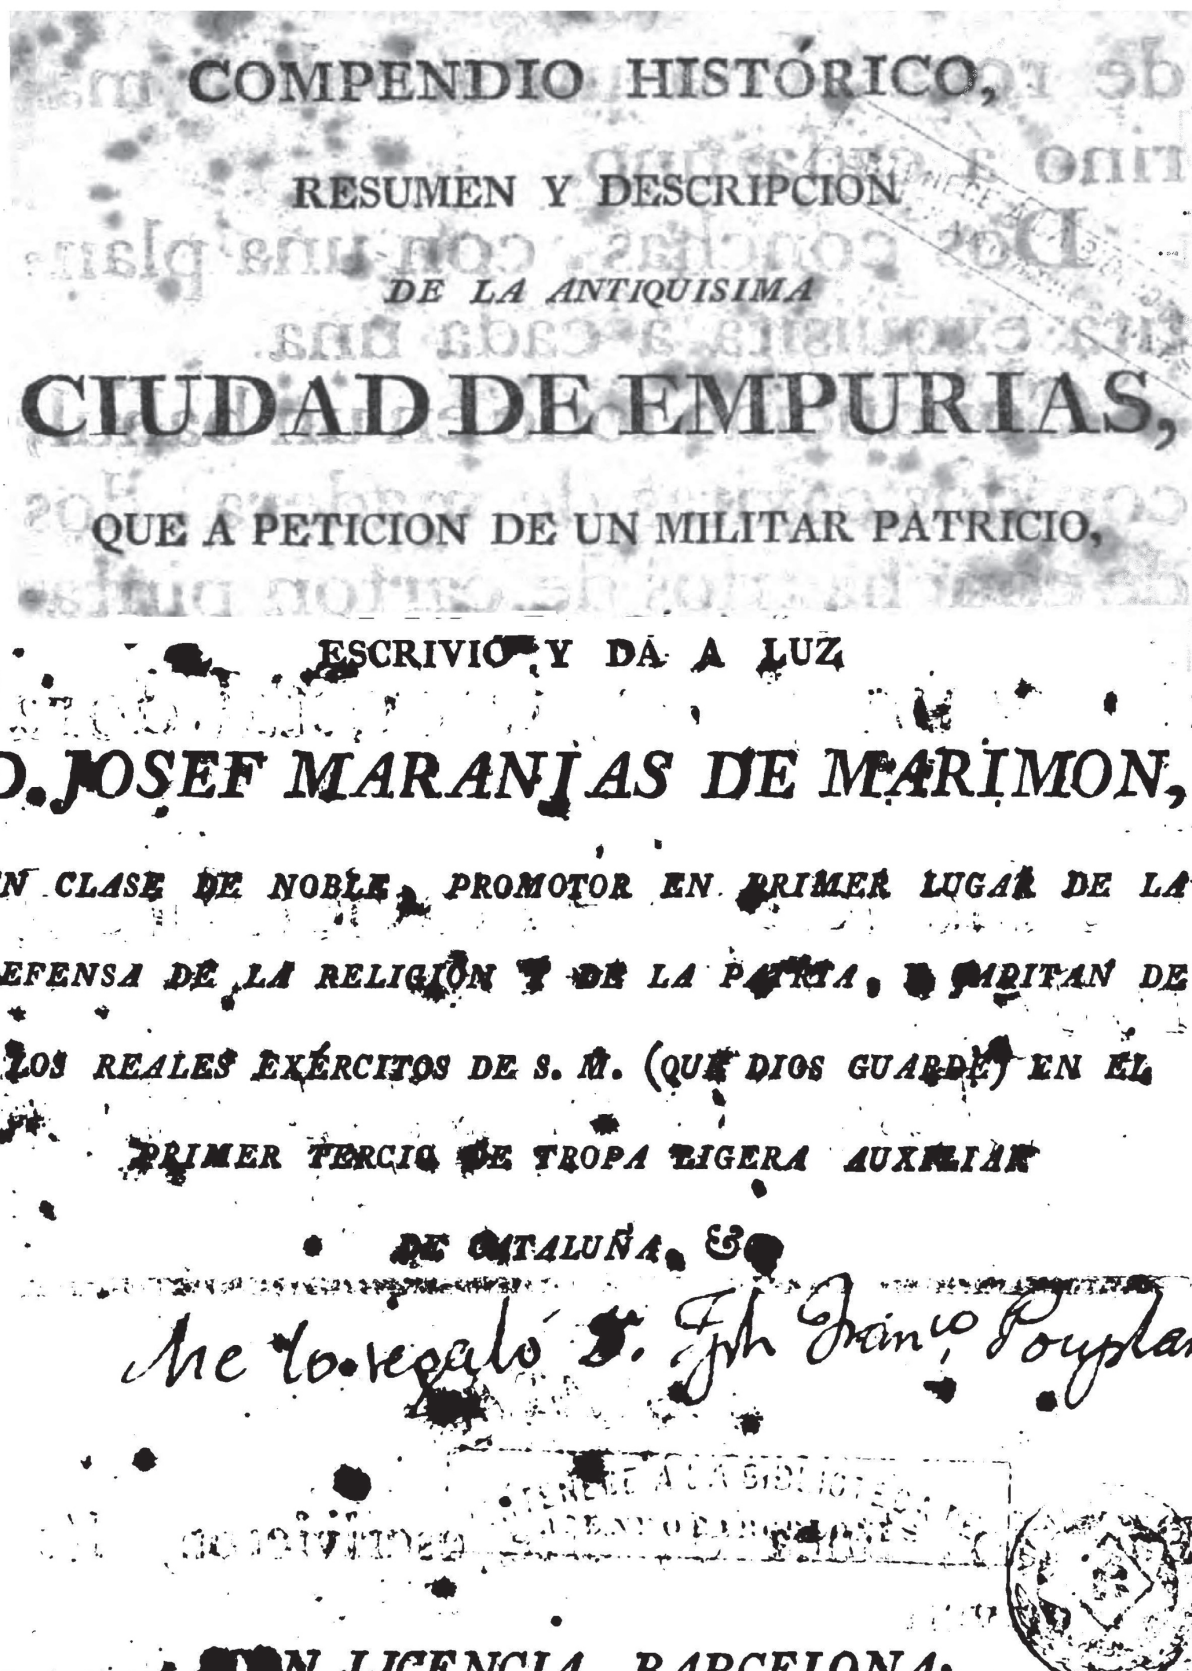 COMPENDIO HISTÓRICO,
RESUMEN Y DESCRIPCION
DE LA ANTIQUISIMA
CIUDAD DE EMPURIAS,
QUE A PETICION DE UN MILITAR PATRICIO,
ESCRIVIÓ Y DÁ A LUZ
D. JOSEF MARANJAS DE MARIMON,
EN CLASE DE NOBLE, PROMOTOR EN PRIMER LUGAR DE LA
DEFENSA DE LA RELIGION Y DE LA PATRIA, Y CAPITAN DE
LOS REALES EXÉRCITOS DE S. M. (QUE DIOS GUARDE) EN EL
PRIMER TERCIO DE TROPA LIGERA AUXILIAR
DE CATALUÑA, &
Me lo regaló D. Jph Franco Pouplan
A LA BIBLIOTECA
CON LICENCIA. BARCELONA: